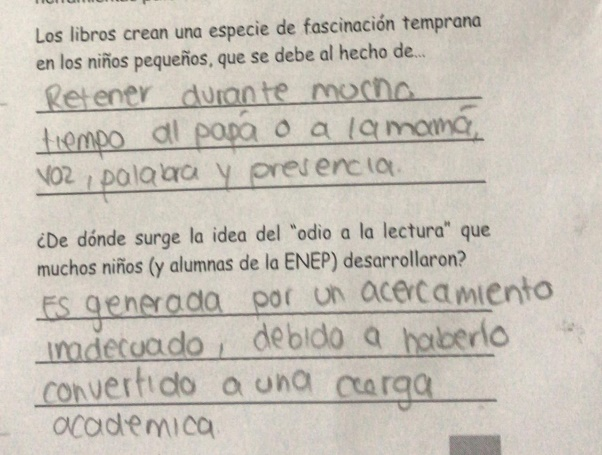 Los libros crean una especie de fascinación temprana
en los niños pequeños, que se debe al hecho de...
Retener durante mucho
tiempo al papá o a la mamá,
voz, palabra y presencia.
¿De dónde surge la idea del "odio a la lectura" que
muchos niños (y alumnas de la ENEP) desarrollaron?
Es generada por un acercamiento
inadecuado, debido a haberlo
convertido a una carga
academica